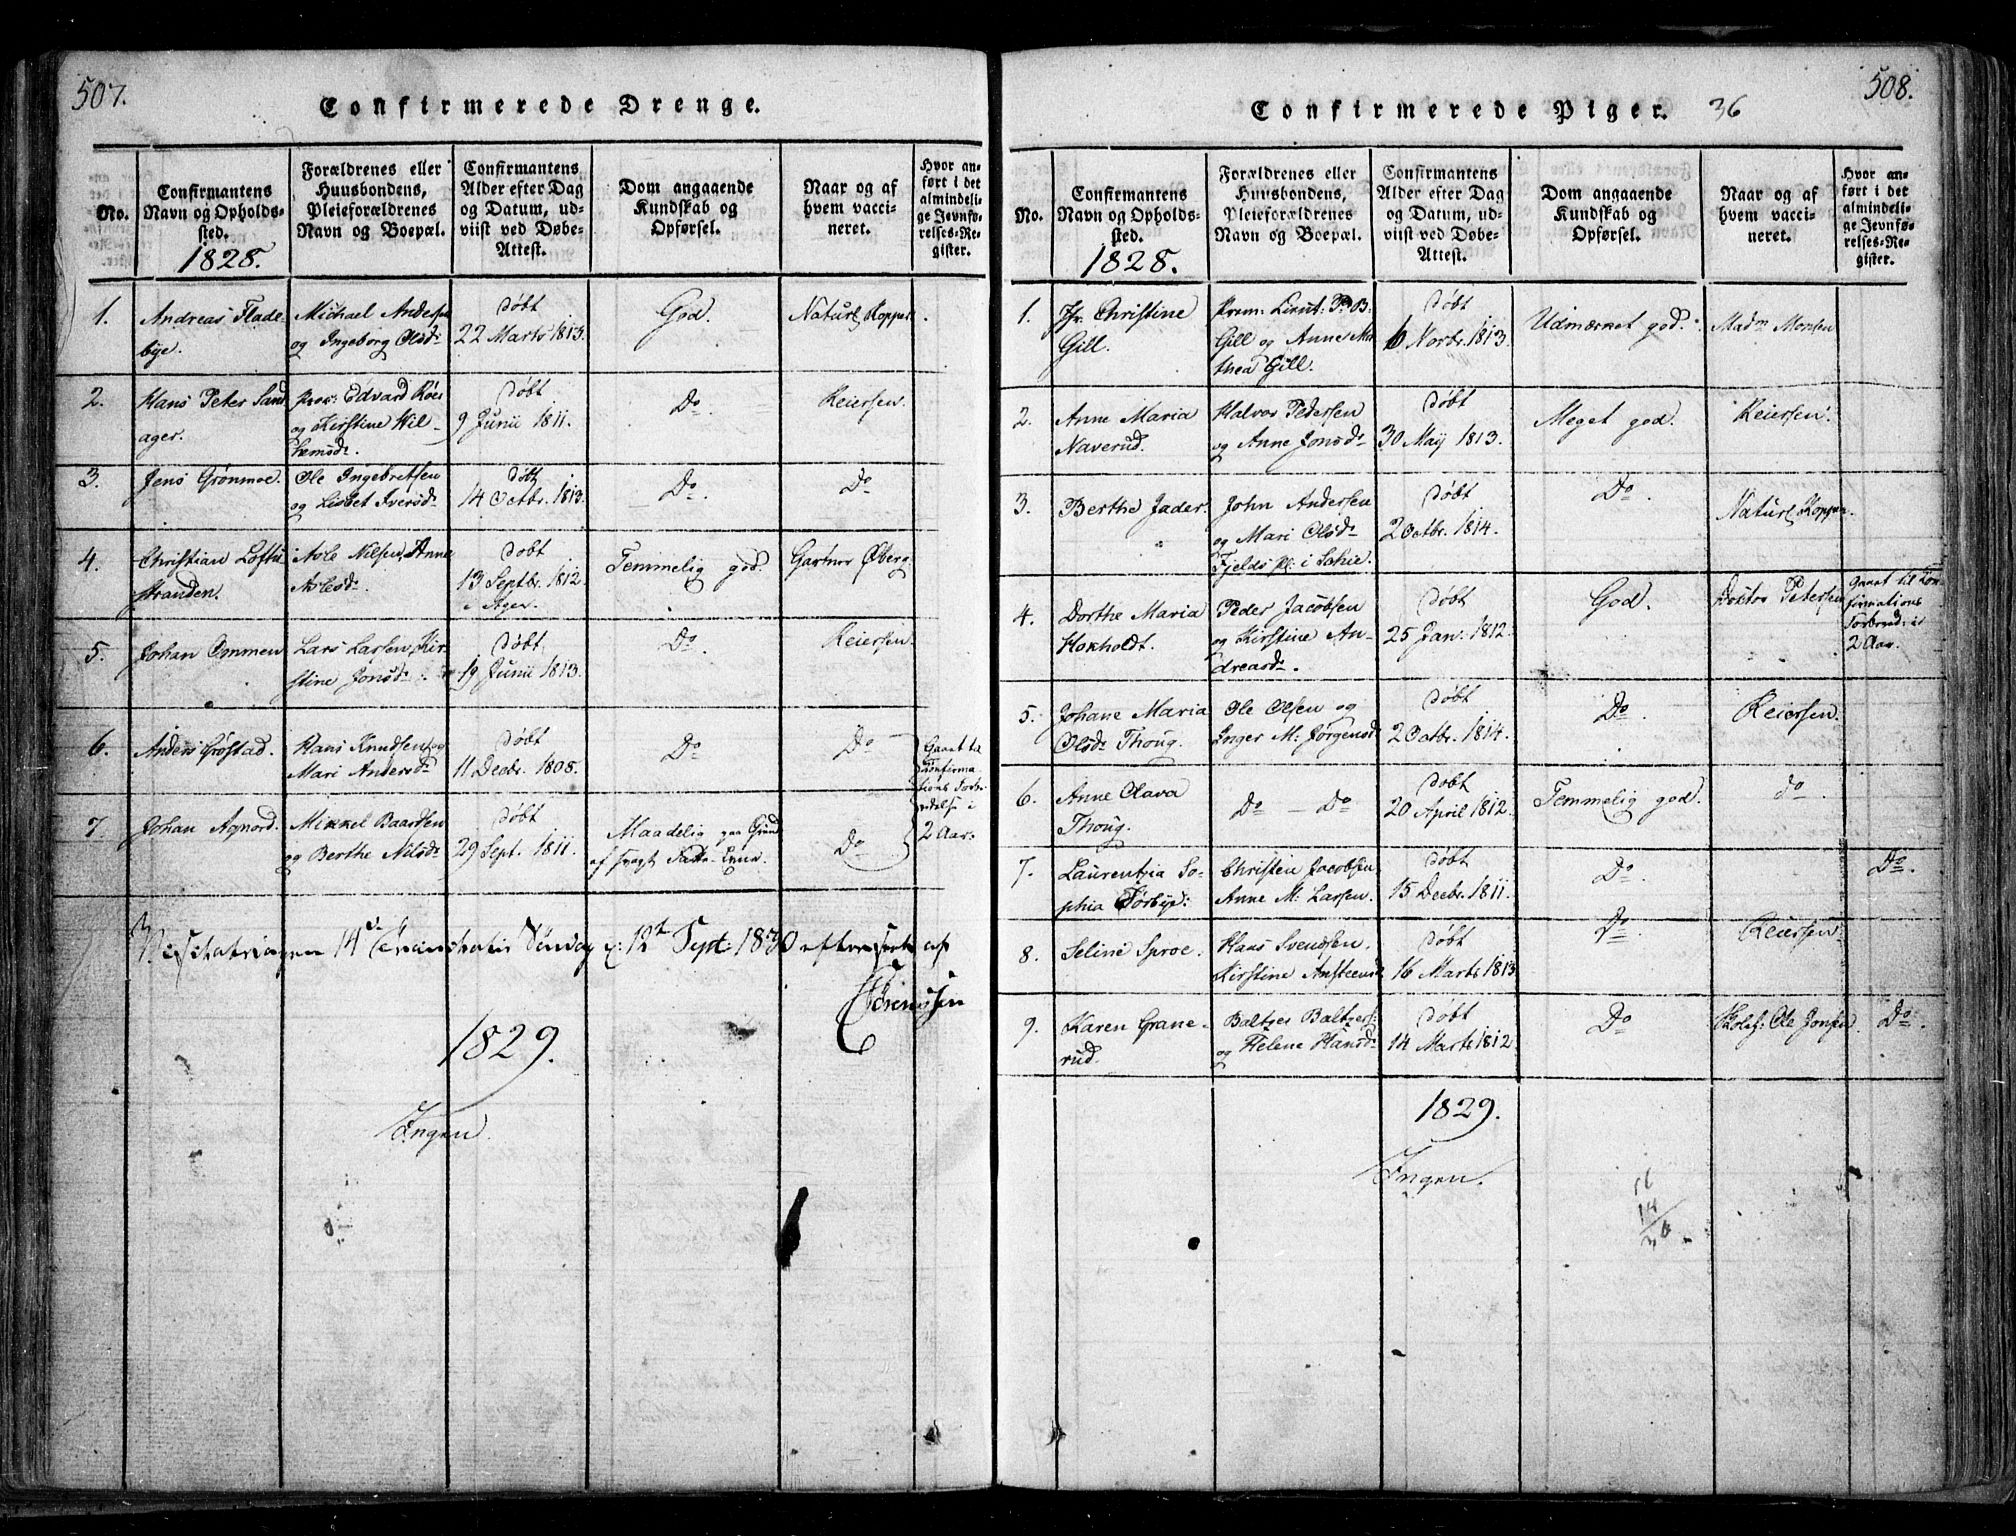 507.
Confirmerede Drenge.
No.
Confirmantens
Navn og Opholds-
sted.
1828.
Forældrenes eller
Huusbondens,
Pleieforældrenes
Navn og Boepæl.
Confirmantens
Alder efter Dag
og Datum, ud-
viist ved Døbe-
Attest.
Dom angaaende
Kundskab og
Opførsel.
Naar og af
hvem vacci-
neret.
Hvor an-
ført i det
almindeli-
ge Jevnfø-
relses-Re-
gister.
1.
Andreas Flade-
bye.
Michael Anders
og Ingeborg Olsd
døbt
22 Marts 1813.
God.
Naturl Kopper.
2.
Hans Peter Sand
ager.
Edvard Røer
og Kirstine Wil-
hemsd.
døbt
9 Junii 1811.
Do.
Reiersen.
3.
Jens Grønmoe.
Ole Ingebretsen
og Lisbet Iversd
døbt
14 Octbr. 1813.
Do.
Do
4.
Christian Loftu
stranden.
Asle Nilsen, Anne
Aslesd.
døbt
13 Septbr. 1812.
i Ager.
Temmelig god.
Gartner Øberg.
5.
Johan Ommen
Lars Larsen, Kir-
stine Jonsd.
døbt
19 Junii 1813.
Do.
Reiersen.
6.
Anders Grøstad.
Hans Knudsen og
Mari Andersd
døbt
11 Decbr. 1808.
Do
Do
Gaaet til
Confirma
tions Forbe
redelse i
2 Aar.
7.
Johan Agnord.
Mikkel Baardsen
og Berthe Nilsd
døbt
29 Sept. 1811.
Maadelig paa Grund
af svagt Fatte-Evne.
Do
14 Trinitatis Søndag 12t Sept: 1830 efterseet af
Sørenssen
1829.
Ingen.
508.
Confirmerede Piger.
36
No.
Confirmantens
Navn og Opholds-
sted.
1828.
Forældrenes eller
Huusbondens,
Pleieforældrenes
Navn og Boepæl.
Confirmantens
Alder efter Dag
og Datum, ud-
viist ved Døbe-
Attest.
Dom angaaende
Kundskab og
Opførsel.
Naar og af
hvem vacci-
neret.
Hvor an-
ført i det
almindeli-
ge Jevnfø-
relses-Re-
gister.
1.
Jfr. Christine
Gill.
Prem: Lieut: P. B.
Gill og Anne Ma
thea Gill.
døbt
6 Novbr. 1813.
Udmærket god.
Madm Monsen
2.
Anne Maria
Naverud.
Halvor Pedersen
og Anne Jonsd
døbt
30 Maij 1813.
Meget god.
Reiersen.
3.
Berthe Jader.
John Andersen
og Mari Olsd
Fjelds pl: i Schie.
døbt
2 Octbr. 1814.
Do.
Naturl Kopper.
4.
Dorthe Maria
Hokholdt.
Peder Jacobsen
og Kirstine An-
dreasd.
døbt
25 Jan. 1812.
God.
Doktor Petersen
Gaaet til Con
firmations
Forbered: i
2 Aar.
5.
Johane Maria
Olsd Thoug.
Ole Olsen og
Inger M: Jørgensd
døbt
2 Octbr. 1814.
Do.
Reiersen.
6.
Anne Olava
Thoug.
Do - Do
døbt
20 April 1812.
Temmelig god.
do.
7.
Laurentzia So-
phia Sørbye:
Christen Jacobsen,
Anne M: Larsen.
døbt
15 Decbr. 1811.
Do.
Do.
8.
Seline Sproe.
Hans Svendsen.
Kirstine Ansteensd
døbt
16 Marts 1813.
Do
Reiersen
9.
Karen Grane-
rud.
Baltzer Baltzers:
og Helene Hansd
døbt
14 Marts 1812
Do
Skolef: Ole Jonsen.
Do.
1829.
Ingen.
16
14
30